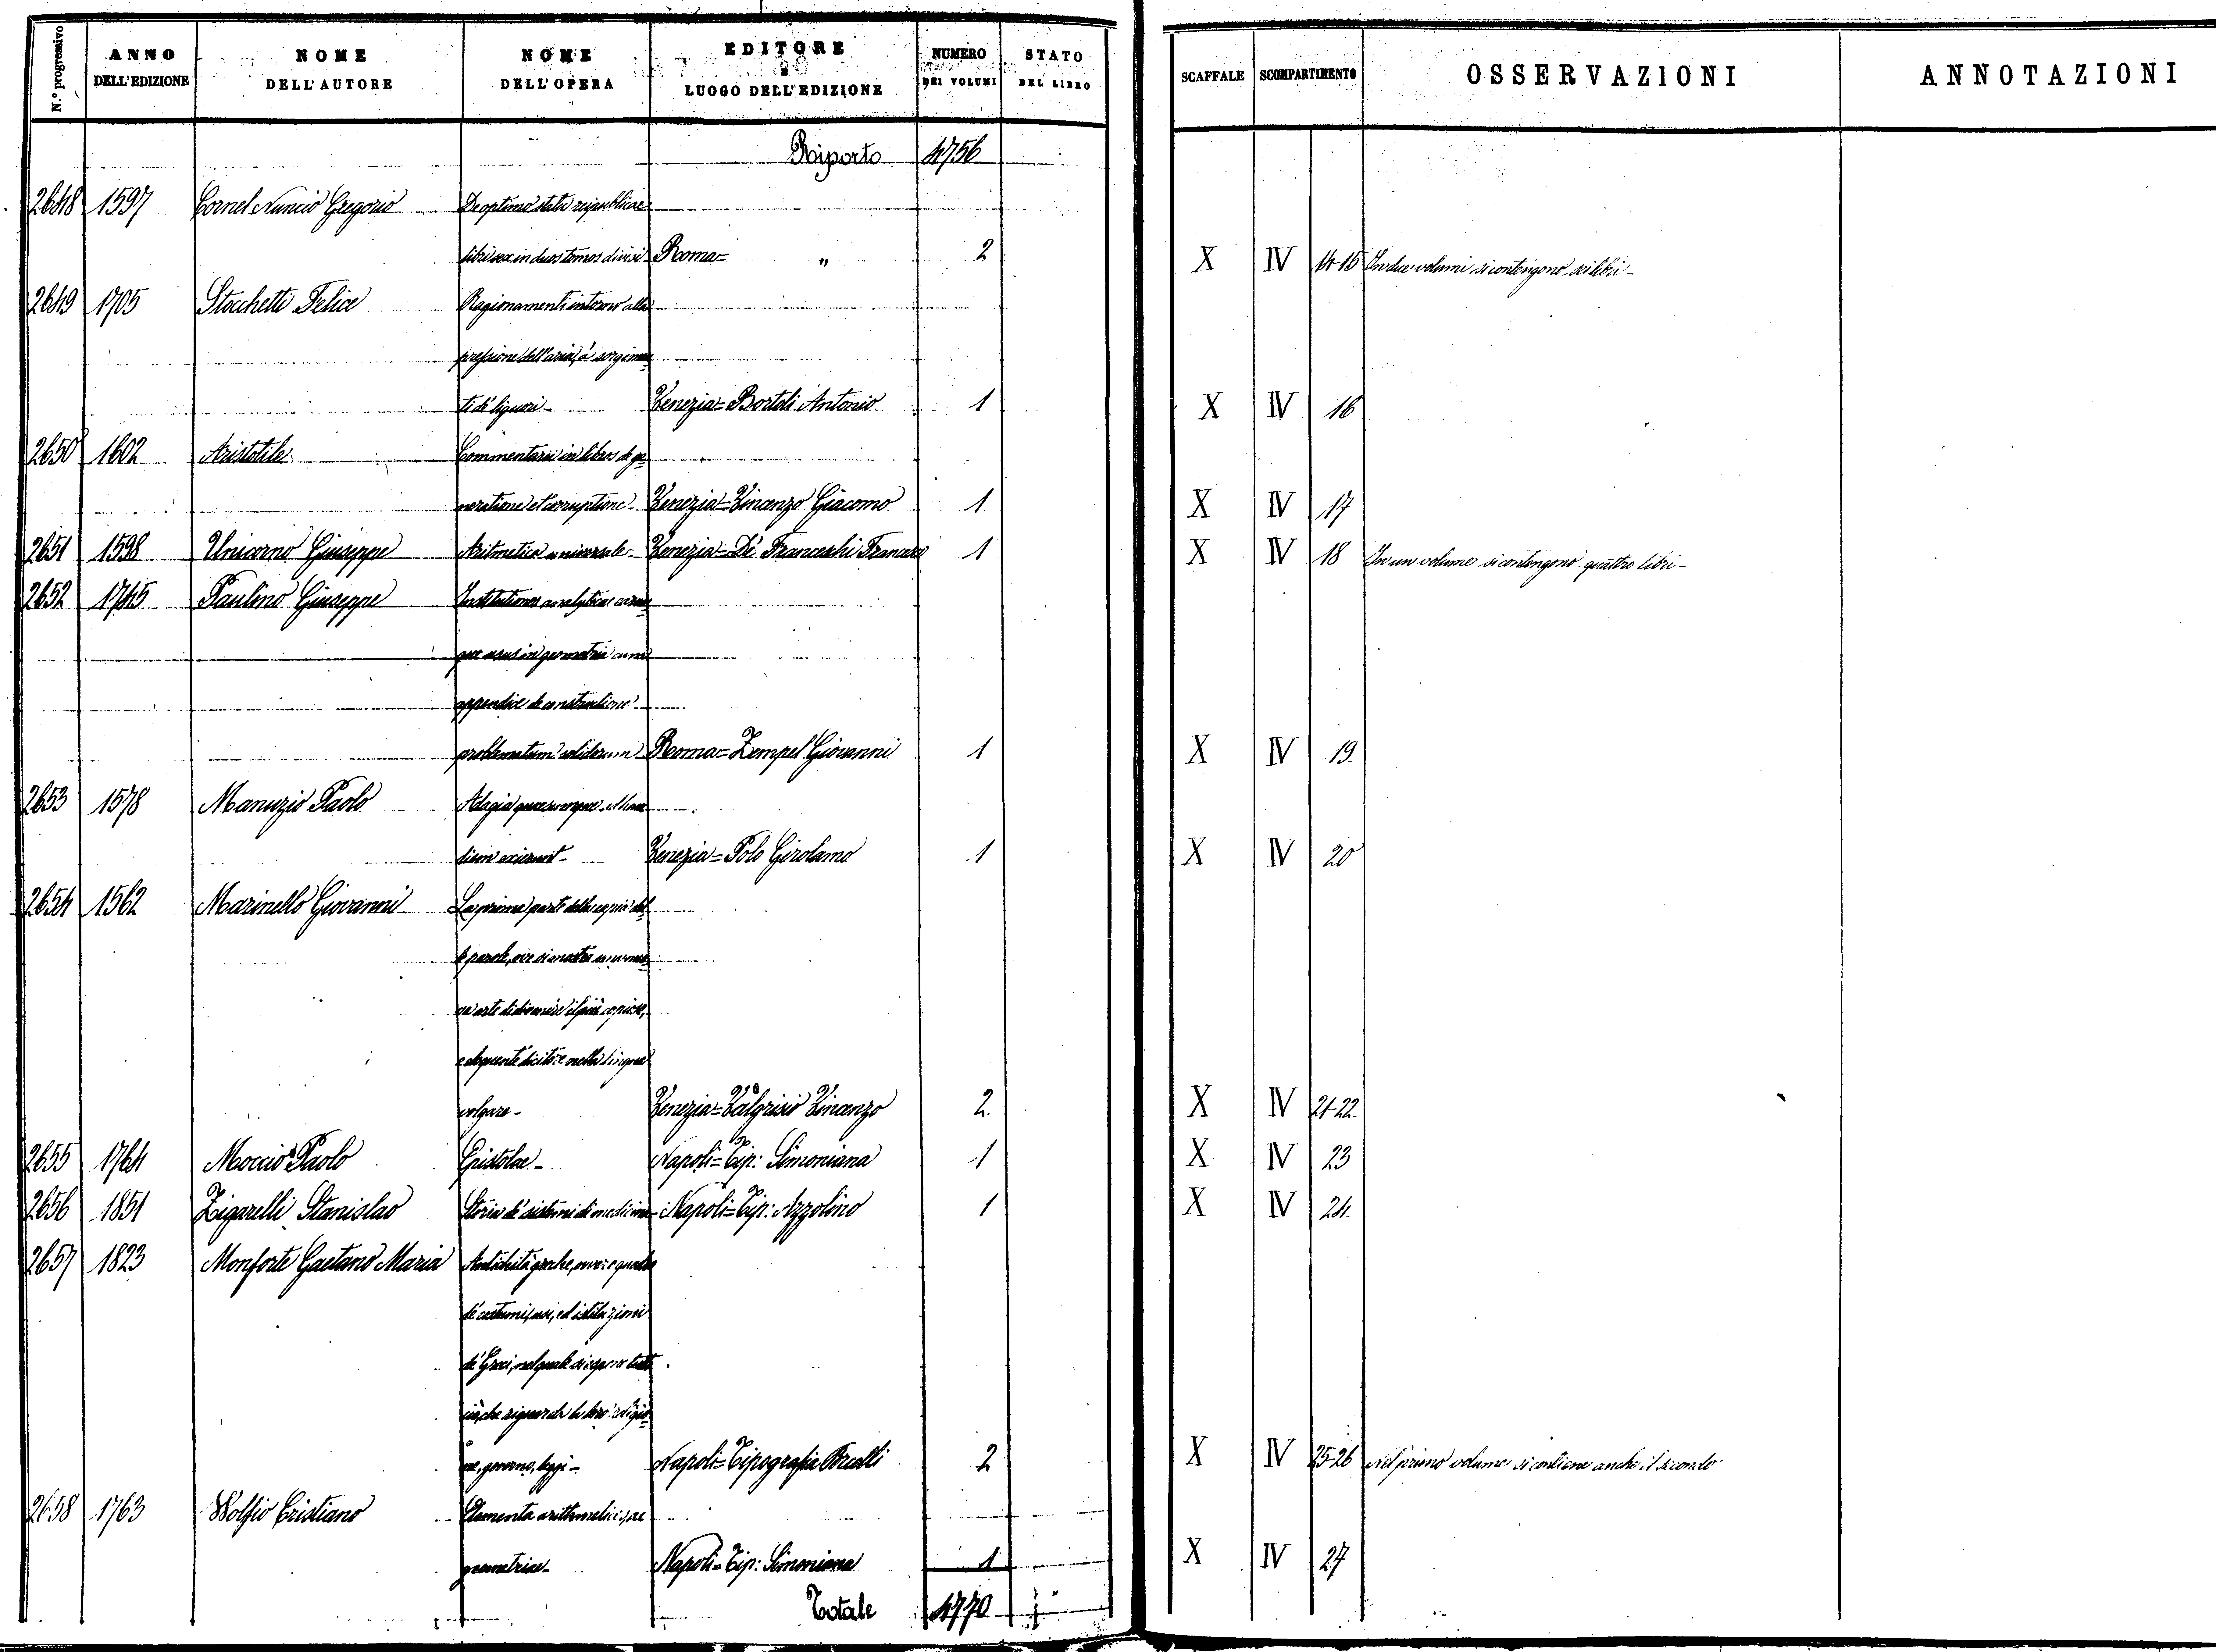 N.° progressivo ANNO DELL'EDIZIONE NOME DELL'AUTORE NOME DELL'OPERA EDITORE E LUOGO DELL'EDIZIONE NUMERO DEI VOLUMI STATO DEL LIBRO SCAFFALE SCOMPARTIMENTO OSSERVAZIONI ANNOTAZIONI
Riporto 4756
2648 1597 Cornel Nuncio Gregorio De optimo statu reipublicae
libri sex in duos tomos divisi Roma= " 2 X IV 14-15 In due volumi si contengono sei libri-
2649 1705 Stocchetti Felice Ragionamenti intorno alla
pressione dell'aria, a sorgimen
ti de' liquori- Venezia= Bortoli Antonio 1 X IV 16
2650 1602 Aristotile Commentaria in libros de ge
neratione et corruptione- Venezia= Vincenzo Giacomo 1 X IV 17
2651 1598 Unicorno Giuseppe Aritmetica universale- Venezia= De' Franceschi Francesco 1 X IV 18 In un volume si contengono quattro libri-
2652 1745 Paulino Giuseppe Institutiones analyticae earum
que usus in geometria cum
appendice de constructione
problematum solidorum Roma= Zempel Giovanni 1 X IV 19
2653 1578 Manuzio Paolo Adagia quaecumque
exierunt- Venezia= Polo Girolamo 1 X IV 20
2654 1562 Marinello Giovanni La prima parte della copia del
le parole, ove si mostra una nuo
va arte di divenire il più copioso,
e eloquente dicitore nella lingua
volgare- Venezia= Valgrisio Vincenzo 2 X IV 21-22
2655 1764 Moccio Paolo Epistolae- Napoli= Tip: Simoniana 1 X IV 23
2656 1851 Zigarelli Stanislao Storia de' sistemi di medicina- Napoli= Tip: Azzolino 1 X IV 24
2657 1823 Monforte Gaetano Maria Antichità greche, ovvero quadro
de' costumi, usi, ed istituzioni
de' Greci, nel quale si espone tutto
ciò, che riguarda la loro religio
ne, governo, leggi- Napoli= Tipografia 2 X IV 25-26 Nel primo volume si contiene anche il secondo
2658 1763 Wolfio Cristiano Elementa arithmeticae
geometriae- Napoli= Tip: Simoniana 1 X IV 27
Totale 4770